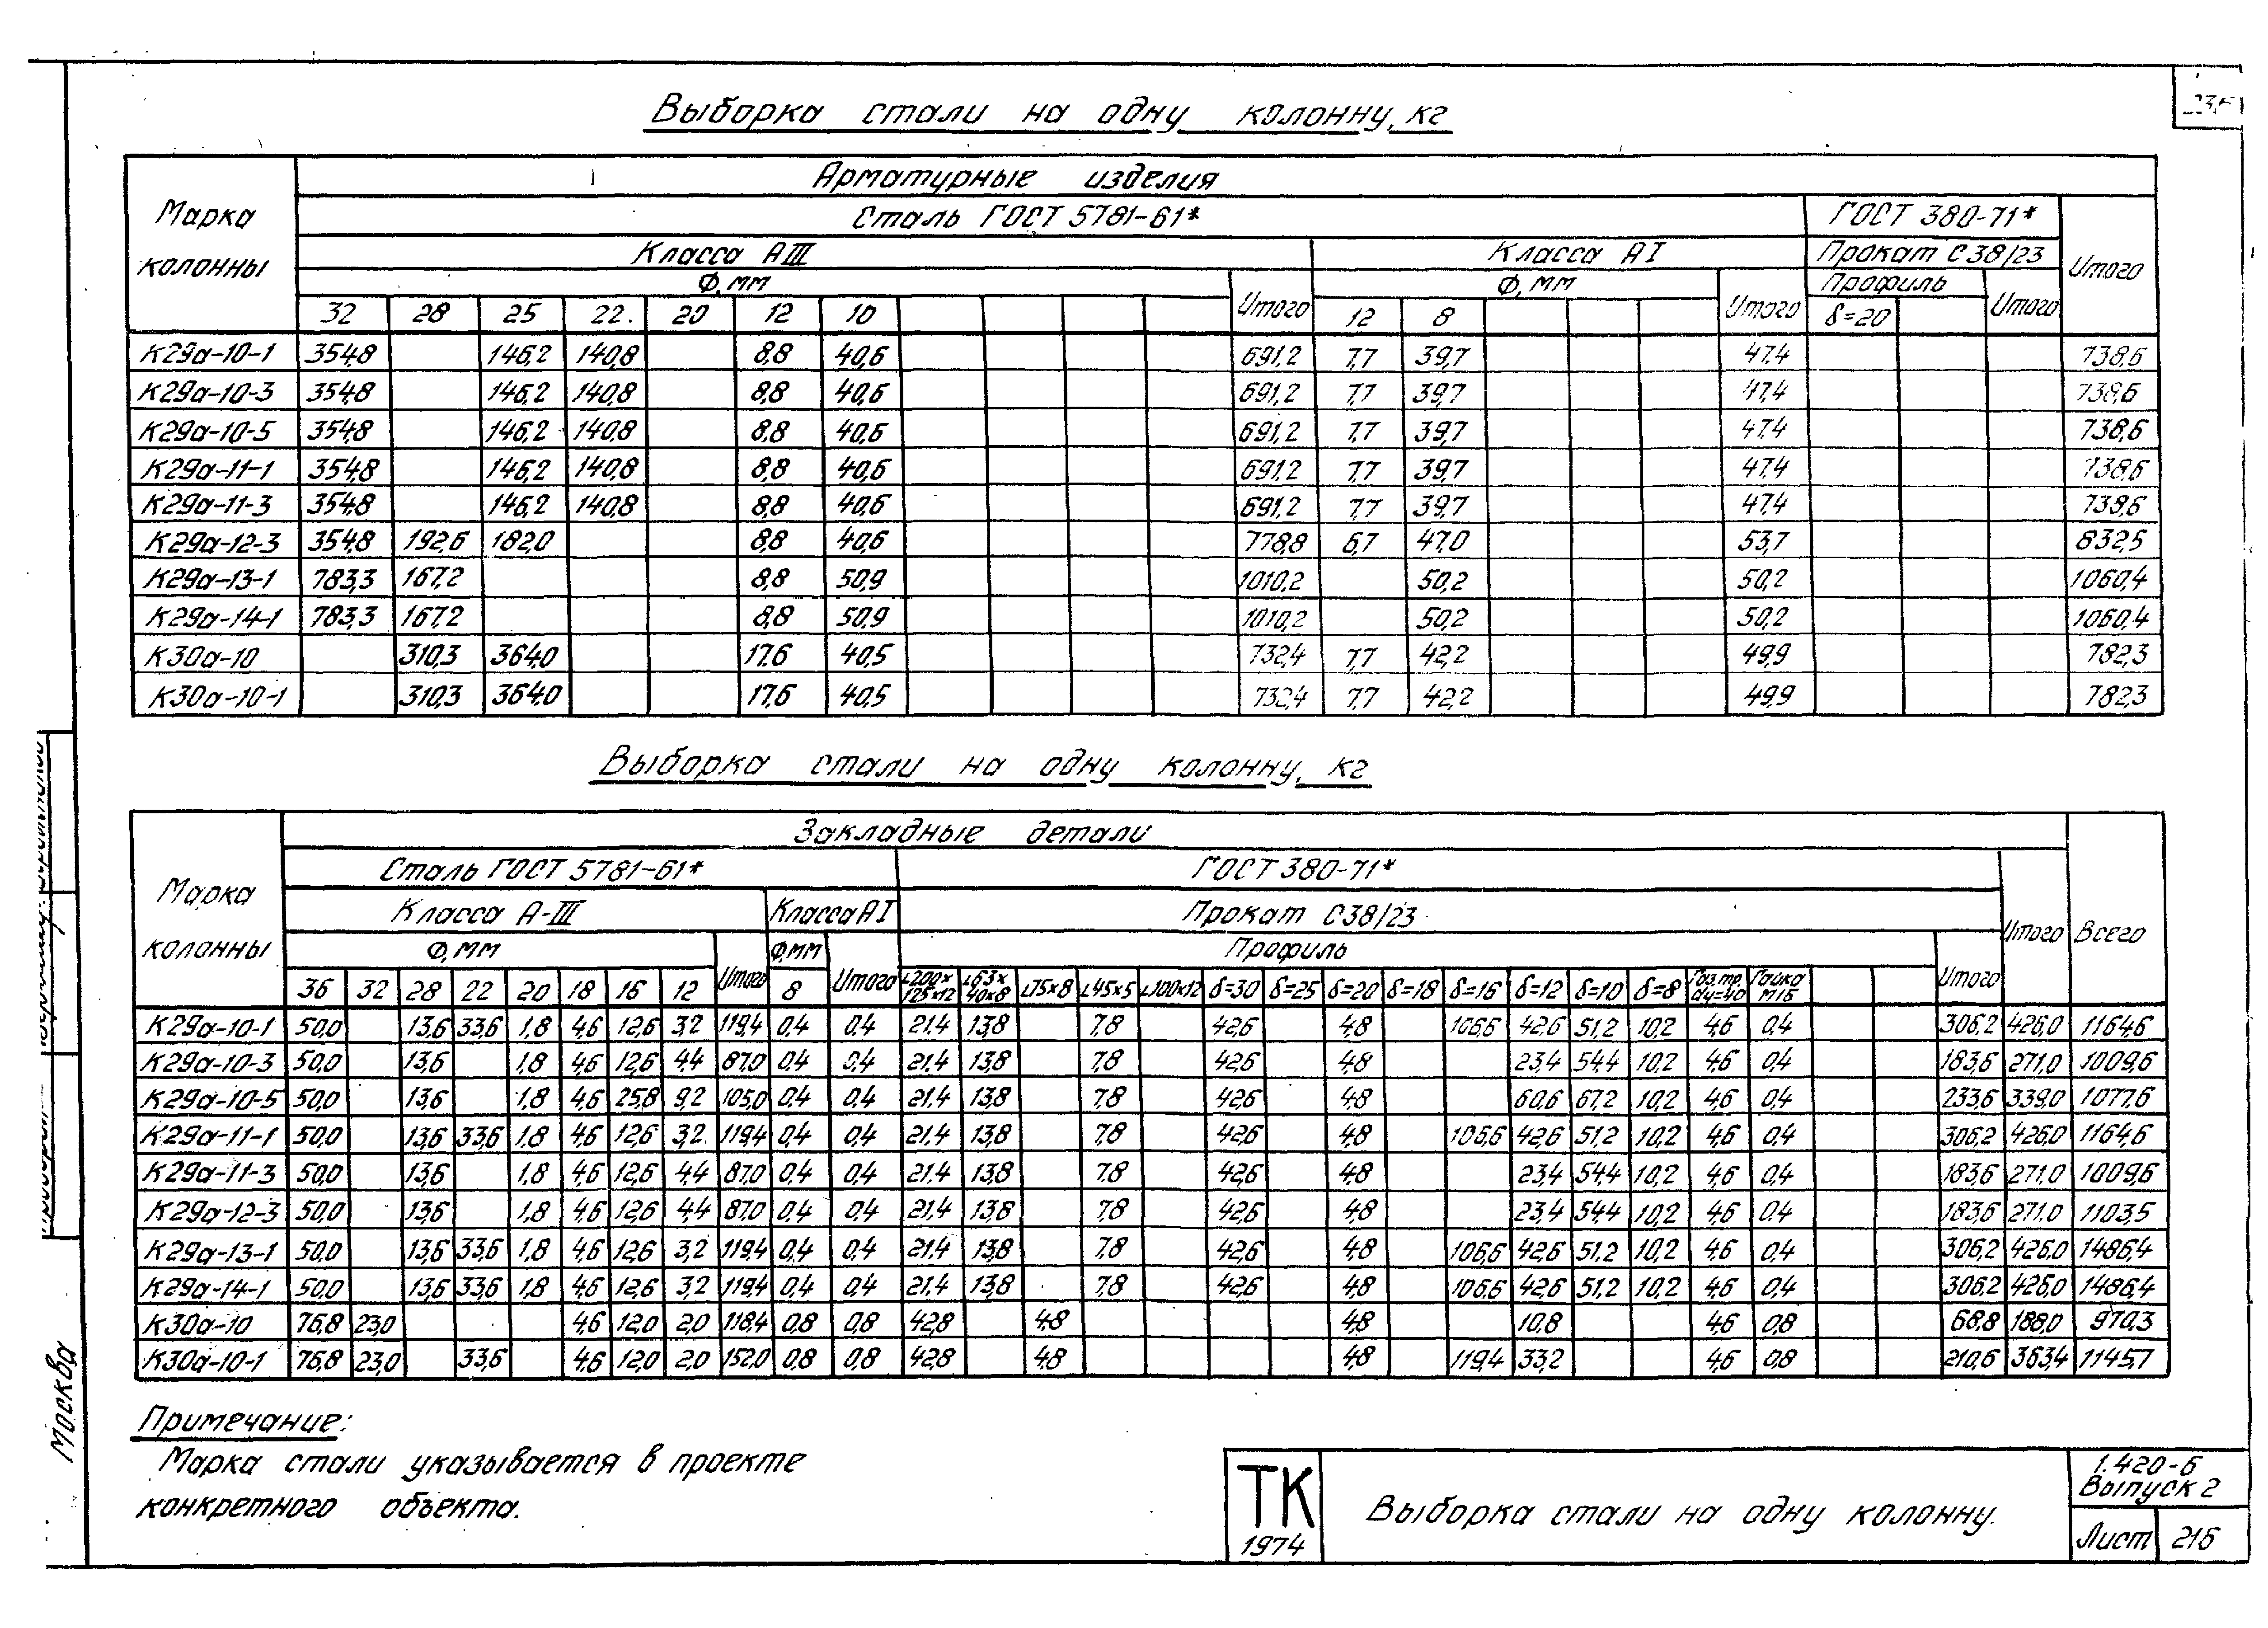 Выборка стали на одну колонну, кг
Марка колонны
Арматурные изделия
Сталь ГОСТ 5781-61* ГОСТ 380-71* Итого
Класса АIII Класса АI Прокат С38/23
Ф, мм Итого Ф, мм Итого Профиль Итого
32 28 25 22. 20 12 10 12 8 δ=20
К29а-10-1 354,8 146,2 140,8 8,8 40,6 691,2 7,7 39,7 47,4 738,6
К29а-10-3 354,8 146,2 140,8 8,8 40,6 691,2 7,7 39,7 47,4 738,6
К29а-10-5 354,8 146,2 140,8 8,8 40,6 691,2 7,7 39,7 47,4 738,6
К29а-11-1 354,8 146,2 140,8 8,8 40,6 691,2 7,7 39,7 47,4 738,6
К29а-11-3 354,8 146,2 140,8 8,8 40,6 691,2 7,7 39,7 47,4 738,6
К29а-12-3 354,8 192,6 182,0 8,8 40,6 778,8 6,7 47,0 53,7 832,5
К29а-13-1 783,3 167,2 8,8 50,9 1010,2 50,2 50,2 1060,4
К29а-14-1 783,3 167,2 8,8 50,9 1010,2 50,2 50,2 1060,4
К30а-10 310,3 364,0 17,6 40,5 732,4 7,7 42,2 49,9 782,3
К30а-10-1 310,3 364,0 17,6 40,5 732,4 7,7 42,2 49,9 782,3
Выборка стали на одну колонну, кг
Марка колонны
Закладные детали Всего
Сталь ГОСТ 5781-61* ГОСТ 380-71* Итого
Класса А-III Класса АI Прокат С38/23
Ф, мм Итого Ф, мм Итого Профиль Итого
36 32 28 22 20 18 16 12 8 L200×125×12 L63×40×8 L75×8 L45×5 L100×12 δ=30 δ=25 δ=20 δ=18 δ=16 δ=12 δ=10 δ=8 Газ.тр. dу=40 Гайка М16
К29а-10-1 50,0 13,6 33,6 1,8 4,6 12,6 3,2 119,4 0,4 0,4 21,4 13,8 7,8 42,6 4,8 106,6 42,6 51,2 10,2 4,6 0,4 306,2 426,0 1164,6
К29а-10-3 50,0 13,6 1,8 4,6 12,6 4,4 87,0 0,4 0,4 21,4 13,8 7,8 42,6 4,8 23,4 54,4 10,2 4,6 0,4 183,6 271,0 1009,6
К29а-10-5 50,0 13,6 1,8 4,6 25,8 9,2 105,0 0,4 0,4 21,4 13,8 7,8 42,6 4,8 60,6 67,2 10,2 4,6 0,4 233,6 339,0 1077,6
К29а-11-1 50,0 13,6 33,6 1,8 4,6 12,6 3,2. 119,4 0,4 0,4 21,4 13,8 7,8 42,6 4,8 106,6 42,6 51,2 10,2 4,6 0,4 306,2 426,0 1164,6
К29а-11-3 50,0 13,6 1,8 4,6 12,6 4,4 87,0 0,4 0,4 21,4 13,8 7,8 42,6 4,8 23,4 54,4 10,2 4,6 0,4 183,6 271,0 1009,6
К29а-12-3 50,0 13,6 1,8 4,6 12,6 4,4 87,0 0,4 0,4 21,4 13,8 7,8 42,6 4,8 23,4 54,4 10,2 4,6 0,4 183,6 271,0 1103,5
К29а-13-1 50,0 13,6 33,6 1,8 4,6 12,6 3,2 119,4 0,4 0,4 21,4 13,8 7,8 42,6 4,8 106,6 42,6 51,2 10,2 4,6 0,4 306,2 426,0 1486,4
К29а-14-1 50,0 13,6 33,6 1,8 4,6 12,6 3,2 119,4 0,4 0,4 21,4 13,8 7,8 42,6 4,8 106,6 42,6 51,2 10,2 4,6 0,4 306,2 426,0 1486,4
К30а-10 76,8 23,0 4,6 12,0 2,0 118,4 0,8 0,8 42,8 4,8 4,8 10,8 4,6 0,8 68,8 188,0 970,3
К30а-10-1 76,8 23,0 33,6 4,6 12,0 2,0 152,0 0,8 0,8 42,8 4,8 4,8 119,4 33,2 4,6 0,8 210,6 363,4 1145,7
Примечание:
Марка стали указывается в проекте
конкретного объекта.
Москва
ТК
1974
Выборка стали на одну колонну.
1.420-6
Выпуск 2
Лист 216